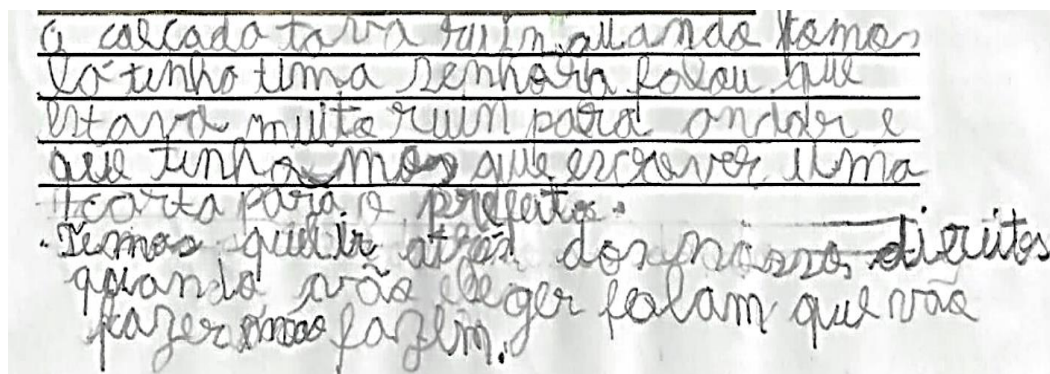 a calcada tava ruin quando fomos
lá tinha uma senhora falou que
estava muito ruin para andar e
que tinha mos que escrever uma
carta para o prefeito.
Temos que ir atrás dos nosso direitos
quando vão eleger falam que vão
fazer não fazem.